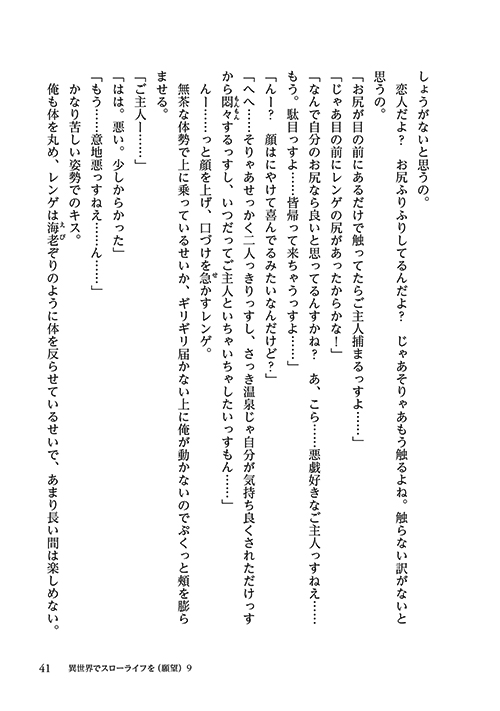 しょうがないと思うの。
　恋人だよ？　お尻ふりふりしてるんだよ？　じゃあそりゃあもう触るよね。触らない訳がないと
思うの。
「お尻が目の前にあるだけで触ってたらご主人捕まるっすよ……」
「じゃあ目の前にレンゲの尻があったからかな！」
「なんで自分のお尻なら良いと思ってるんすかね？　あ、こら……悪戯好きなご主人っすねえ……
もう。駄目っすよ……皆帰って来ちゃうっすよ……」
「んー？　顔はにやけて喜んでるみたいなんだけど？」
「へへ……そりゃあせっかく二人っきりっすし、さっき温泉じゃ自分が気持ち良くされただけっす
から悶々するっすし、いつだってご主人といちゃいちゃしたいっすもん……」
　んー……っと顔を上げ、口づけを急かすレンゲ。
　無茶な体勢で上に乗っているせいか、ギリギリ届かない上に俺が動かないのでぷくっと頬を膨ら
ませる。
「ご主人ー……」
「はは。悪い。少しからかった」
「もう……意地悪っすねえ……ん……」
　かなり苦しい姿勢でのキス。
　俺も体を丸め、レンゲは海老ぞりのように体を反らせているせいで、あまり長い間は楽しめない。
41　異世界でスローライフを（願望）9